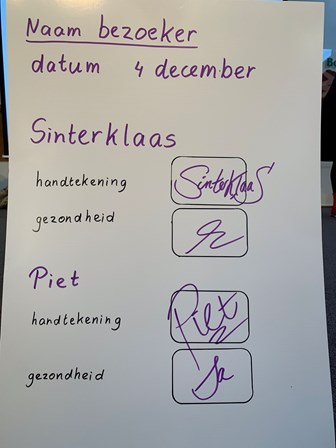 Naam bezoeker
datum 4 december
Sinterklaas
handtekening SinterklaaS
gezondheid
Piet
handtekening Piet
gezondheid Ja